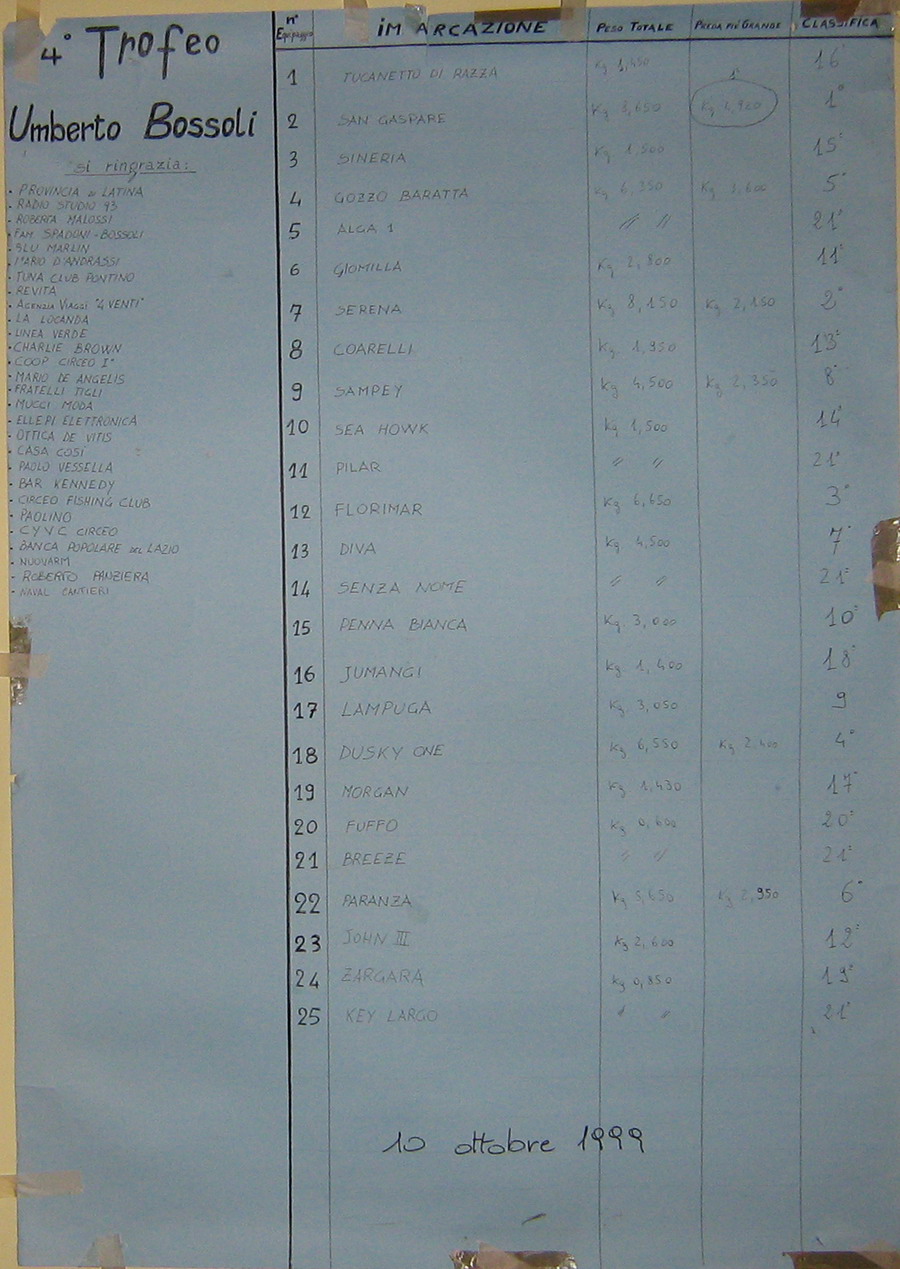 4° Trofeo
Umberto Bossoli
si ringrazia:
- PROVINCIA di LATINA
- RADIO STUDIO 93
- ROBERTA MALOSSI
- FAM. SPADONI-BOSSOLI
- BLU MARLIN
- MARIO D'ANDRASSI
- TUNA CLUB PONTINO
- REVITA
- AGENZIA VIAGGI "4 VENTI"
- LA LOCANDA
- LINEA VERDE
- CHARLIE BROWN
- COOP CIRCEO I°
- MARIO DE ANGELIS
- FRATELLI TIGLI
- MUCCI MODA
- ELLEPI ELETTRONICA
- OTTICA DE VITIS
- CASA COSI
- PAOLO VESSELLA
- BAR KENNEDY
- CIRCEO FISHING CLUB
- PAOLINO
- C.Y.V.C. CIRCEO
- BANCA POPOLARE DEL LAZIO
- NUOVARM
- ROBERTO PANZIERA
- NAVAL CANTIERI
n° Equipaggio IMBARCAZIONE PESO TOTALE PREDA PIÙ GRANDE CLASSIFICA
1 TUCANETTO DI RAZZA Kg 1,450 16°
2 SAN GASPARE Kg 3,650 1° Kg 1°
3 SINERIA Kg 1,500 15°
4 GOZZO BARATTA Kg 6,350 Kg 3,600 5°
5 ALGA 1 // // 21°
6 GIOMILLA Kg 2,800 11°
7 SERENA Kg 8,150 Kg 2,150 2°
8 COARELLI Kg. 1,950 13°
9 SAMPEY Kg 4,500 Kg 2,350 8°
10 SEA HOWK Kg 1,500 14°
11 PILAR // // 21°
12 FLORIMAR Kg 6,650 3°
13 DIVA Kg 4,500 7°
14 SENZA NOME // // 21°
15 PENNA BIANCA Kg. 3,000 10°
16 JUMANGI Kg 1,400 18°
17 LAMPUGA Kg. 3,050 9
18 DUSKY ONE Kg 6,550 Kg 2,400 4°
19 MORGAN Kg 1,430 17°
20 FUFFO Kg 0,600 20°
21 BREEZE // // 21°
22 PARANZA Kg 5,650 Kg 2,950 6°
23 JOHN III Kg 2,600 12°
24 ZARGARA Kg 0,850 19°
25 KEY LARGO // // 21°
10 ottobre 1999